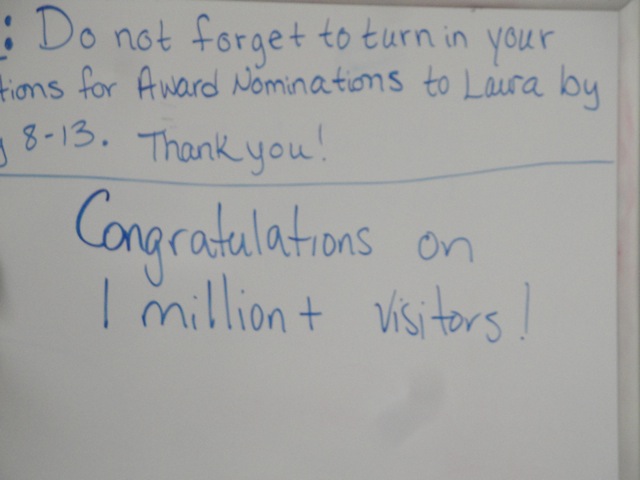 : Do not forget to turn in your
tions for Award Nominations to Laura by
8-13. Thank you!
Congratulations on
1 million+ visitors!